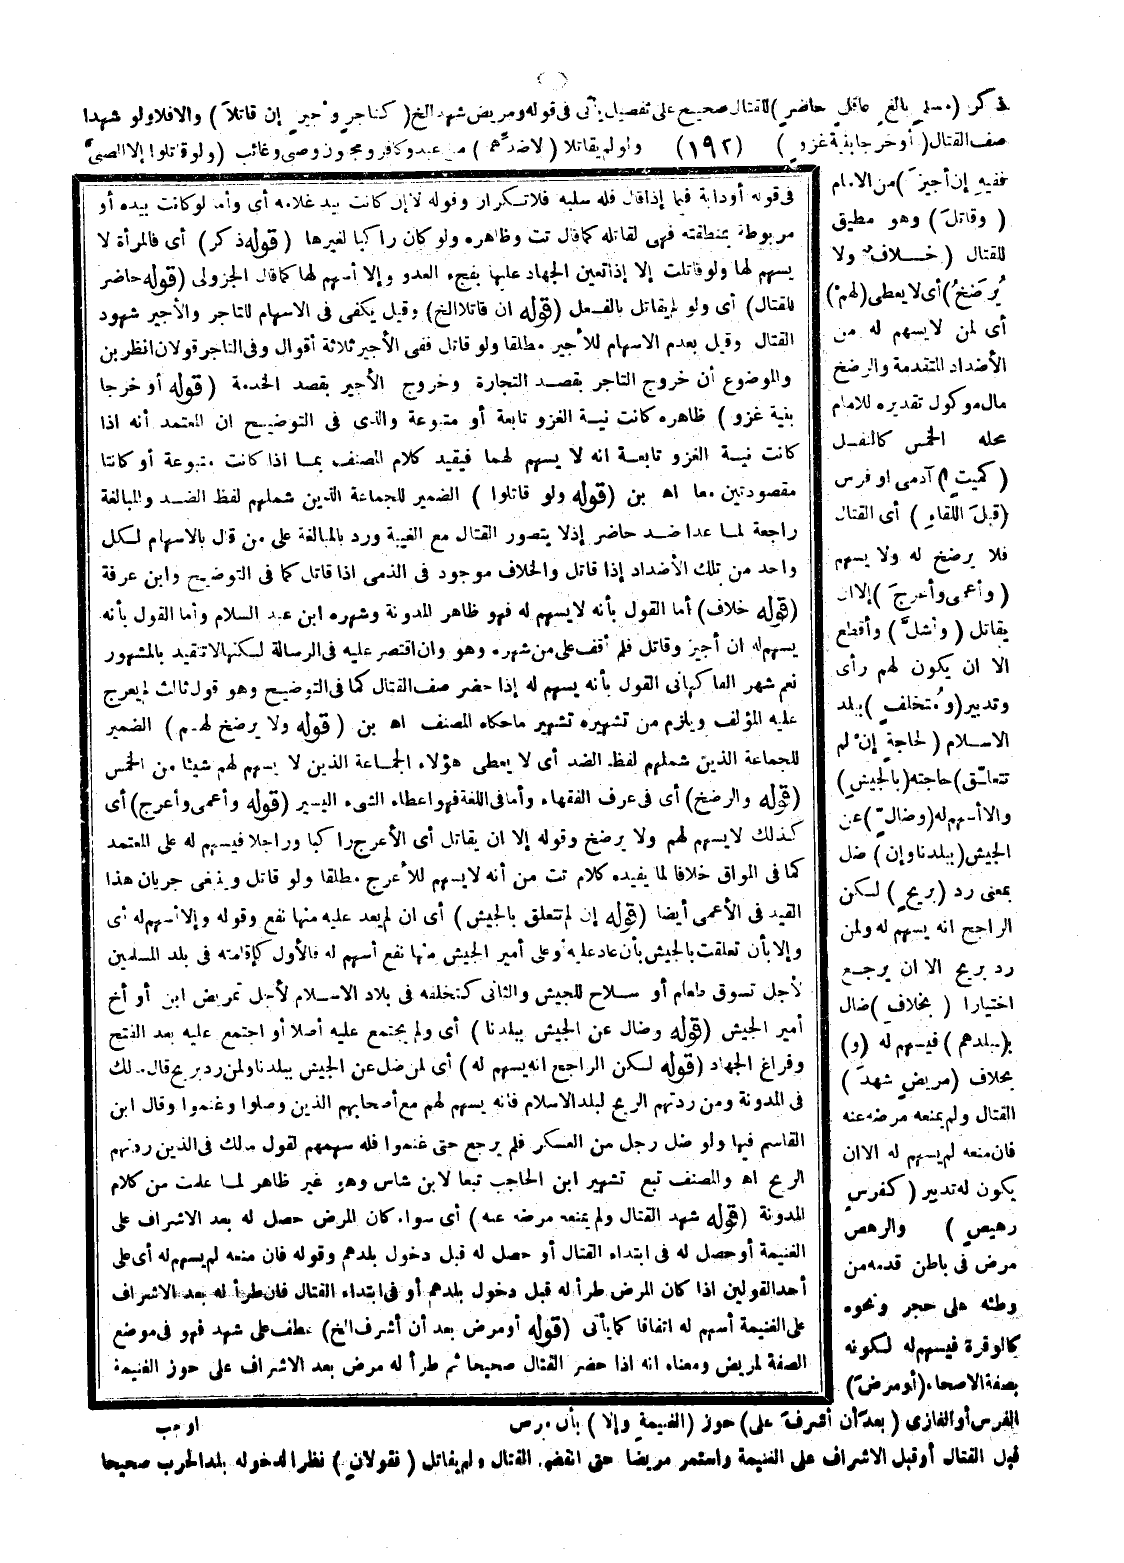 ذكر (مسلم بالغ عاقل حاضر) للقتال صحيح على تفصيل يأتى فى قوله ومريض شهد الخ (كتاجر وأجير إن قاتلا) والا فلا ولو شهدا
صف القتال (أو خرجا بنية غزو) (١٩٢) ولو لم يقاتلا (لا ضدهم) من عبد وكافر ومجنون وصبى وغائب (ولو قاتلوا إلا الصبى
ففيه إن أجيز) من الامام
(وقاتل) وهو مطيق
للقتال (خلاف ولا
يرضخ) أى لا يعطى (لهم)
أى لمن لا يسهم له من
الأضداد المتقدمة والرضخ
مال موكول تقديره للامام
محله الخمس كالنفل
(كميت) آدمى او فرس
(قبل اللقاء) أى القتال
فلا يرضخ له ولا يسهم
(وأعمى وأعرج) إلا ان
يقاتل (وأشل) وأقطع
الا ان يكون لهم رأى
وتدبير (ومتخلف) ببلد
الاسلام (لحاجة إن لم
تتعلق) حاجته (بالجيش)
والا أسهم له (وضال) عن
الجيش (ببلدنا وإن) ضل
بمعنى رد (بريح) لكن
الراجح انه يسهم له ولمن
رد بريح الا ان يرجع
اختيارا (بخلاف) ضال
(ببلدهم) فيسهم له (و)
بخلاف (مريض شهد)
القتال ولم يمنعه مرضه عنه
فان منعه لم يسهم له الا ان
يكون له تدبير (كفرس
رهيص) والرهص
مرض فى باطن قدمه من
وطئه على حجر ونحوه
كالوقرة فيسهم له لكونه
بصفة الاصحاء (أو مرض)
الفرس أو الغازى (بعد أن أشرف على) حوز (الغنيمة وإلا) بأن مرض
قبل القتال أو قبل الاشراف على الغنيمة واستمر مريضا حتى انقضى القتال ولم يقاتل (فقولان) نظرا لدخوله بلد الحرب صحيحا
فى قوله أو دابة فيما إذا قال فله سلبه فلا تكرار وقوله لا إن كانت بيد غلامه أى وأما لو كانت بيده أو
مربوطة بمنطقته فهى لقاتله كما قال تت وظاهره ولو كان راكبا لغيرها (قوله ذكر) أى فالمرأة لا
يسهم لها ولو قاتلت إلا إذا تعين الجهاد عليها بفجء العدو وإلا أسهم لها كما قال الجزولى (قوله حاضر
للقتال) أى ولو لم يقاتل بالفعل (قوله ان قاتلا الخ) وقيل يكفى فى الاسهام للتاجر والأجير شهود
القتال وقيل بعدم الاسهام للأجير مطلقا ولو قاتل ففى الأجير ثلاثة أقوال وفى التاجر قولان انظر بن
والموضوع أن خروج التاجر بقصد التجارة وخروج الأجير بقصد الخدمة (قوله أو خرجا
بنية غزو) ظاهره كانت نية الغزو تابعة أو متبوعة والذى فى التوضيح ان المعتمد أنه اذا
كانت نية الغزو تابعة انه لا يسهم لهما فيقيد كلام المصنف بما اذا كانت متبوعة أو كانتا
مقصودتين معا اه بن (قوله ولو قاتلوا) الضمير للجماعة الذين شملهم لفظ الضد والمبالغة
راجعة لما عدا ضد حاضر إذ لا يتصور القتال مع الغيبة ورد بالمبالغة على من قال بالاسهام لكل
واحد من تلك الأضداد إذا قاتل والخلاف موجود فى الذمى اذا قاتل كما فى التوضيح وابن عرفة
(قوله خلاف) أما القول بأنه لا يسهم له فهو ظاهر المدونة وشهره ابن عبد السلام وأما القول بأنه
يسهم له ان أجيز وقاتل فلم أقف على من شهره وهو وان اقتصر عليه فى الرسالة لكنها لا تتقيد بالمشهور
نعم شهر الفاكهانى القول بأنه يسهم له إذا حضر صف القتال كما فى التوضيح وهو قول ثالث لم يعرج
عليه المؤلف ويلزم من تشهيره تشهير ما حكاه المصنف اه بن (قوله ولا يرضخ لهم) الضمير
للجماعة الذين شملهم لفظ الضد أى لا يعطى هؤلاء الجماعة الذين لا يسهم لهم شيئا من الخمس
(قوله والرضخ) أى فى عرف الفقهاء وأما فى اللغة فهو اعطاء الشىء اليسير (قوله وأعمى وأعرج) أى
كذلك لا يسهم لهم ولا يرضخ وقوله إلا ان يقاتل أى الأعرج راكبا وراجلا فيسهم له على المعتمد
كما فى المواق خلافا لما يفيده كلام تت من أنه لا يسهم للأعرج مطلقا ولو قاتل وينبغى جريان هذا
القيد فى الأعمى أيضا (قوله إن لم تتعلق بالجيش) أى ان لم يعد عليه منها نفع وقوله وإلا أسهم له أى
وإلا بأن تعلقت بالجيش بأن عاد عليه أو على أمير الجيش منها نفع أسهم له فالأول كإقامته فى بلد المسلمين
لأجل تسوق طعام أو سلاح للجيش والثانى كتخلفه فى بلاد الاسلام لأجل تمريض ابن أو أخ
أمير الجيش (قوله وضال عن الجيش ببلدنا) أى ولم يجتمع عليه أصلا أو اجتمع عليه بعد الفتح
وفراغ الجهاد (قوله لكن الراجح انه يسهم له) أى لمن ضل عن الجيش ببلدنا ولمن رد بريح قال مالك
فى المدونة ومن ردتهم الريح لبلد الاسلام فانه يسهم لهم مع أصحابهم الذين وصلوا وغنموا وقال ابن
القاسم فيها ولو ضل رجل من العسكر فلم يرجع حتى غنموا فله سهمهم لقول مالك فى الذين ردتهم
الريح اه والمصنف تبع تشهير ابن الحاجب تبعا لابن شاس وهو غير ظاهر لما علمت من كلام
المدونة (قوله شهد القتال ولم يمنعه مرضه عنه) أى سواء كان المرض حصل له بعد الاشراف على
الغنيمة أو حصل له فى ابتداء القتال أو حصل له قبل دخول بلدهم وقوله فان منعه لم يسهم له أى على
أحد القولين اذا كان المرض طرأ له قبل دخول بلدهم أو فى ابتداء القتال فان طرأ له بعد الاشراف
على الغنيمة أسهم له اتفاقا كما يأتى (قوله أو مرض بعد أن أشرف الخ) عطف على شهد فهو فى موضع
الصفة لمريض ومعناه انه اذا حضر القتال صحيحا ثم طرأ له مرض بعد الاشراف على حوز الغنيمة